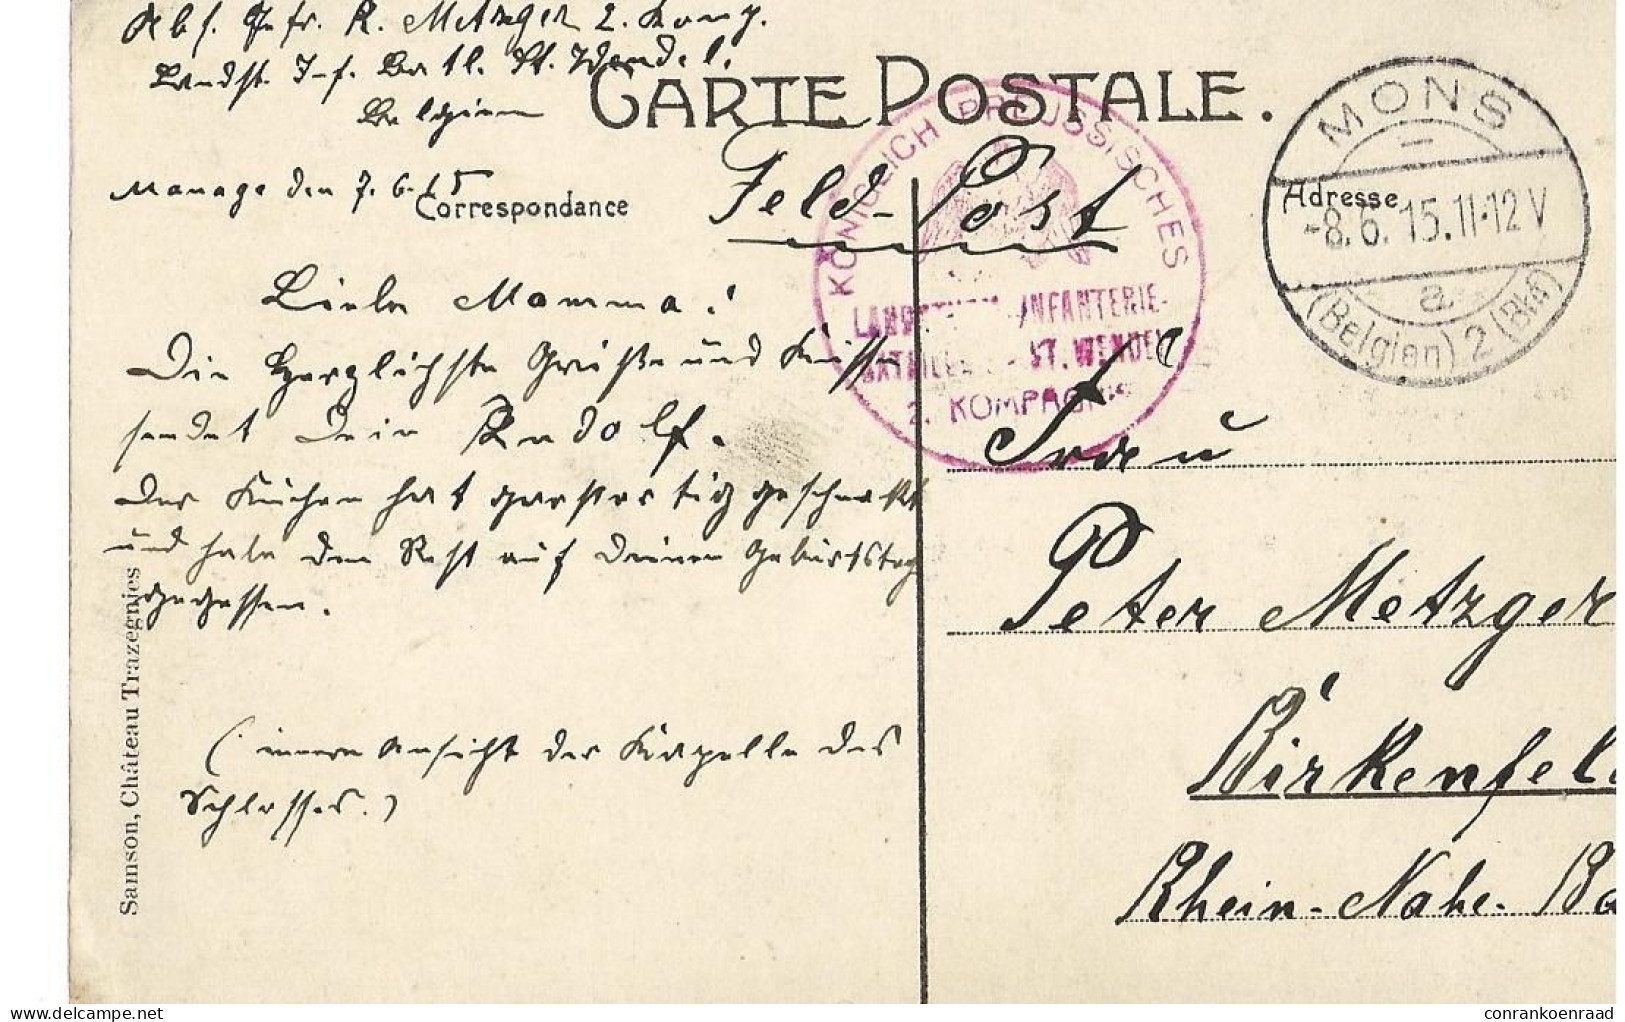 Abs. Gefr. R. Metzger 2. Komp.
Landst. Inf. Batl. St. Wendel.
Belgien
CARTE POSTALE.
Manage den 7.6.15
Correspondance
Feld-Post
Liebe Mamma!
Die herzlichste Grüße und Küsse
sendet Dein Rudolf.
Der Kuchen hat geschmeckt
und habe den Rest auf Deinen Geburtstag
gegessen.
(innere Ansicht der Kapelle des
Schlosses.)
Samson, Château Trazegnies
KÖNIGLICH PREUSSISCHES
LANDSTURM INFANTERIE-
BATAILLON ST. WENDEL
2. KOMPAGNIE
MONS
Adresse
-8.6.15.11-12V
a
(Belgien) 2 (Bkf)
Frau
Peter Metzger
Birkenfel
Rhein-Nahe-Ba
www.delcampe.net
conrankoenraad